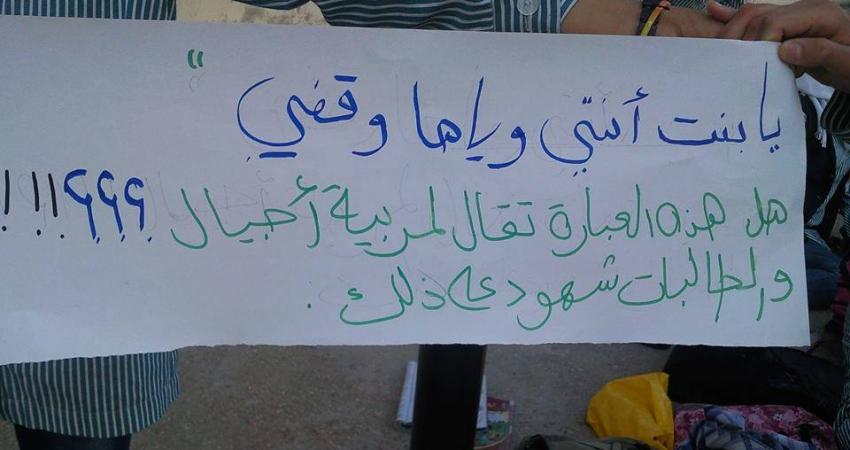 يا بنت أنتي وياها وقفي "
هل هذه العبارة تقال لمربية أجيال ؟؟؟!!!
والطالبات شهود على ذلك .